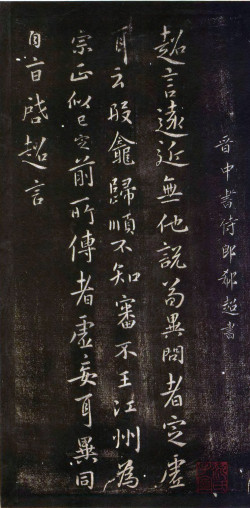 晋中書侍郎郗超書
超言遠近無他説苟異問者定虚
耳云段龕歸順不知審不王江州為
宗正似已定前所傳者虚妄耳異同
自旨啓超言